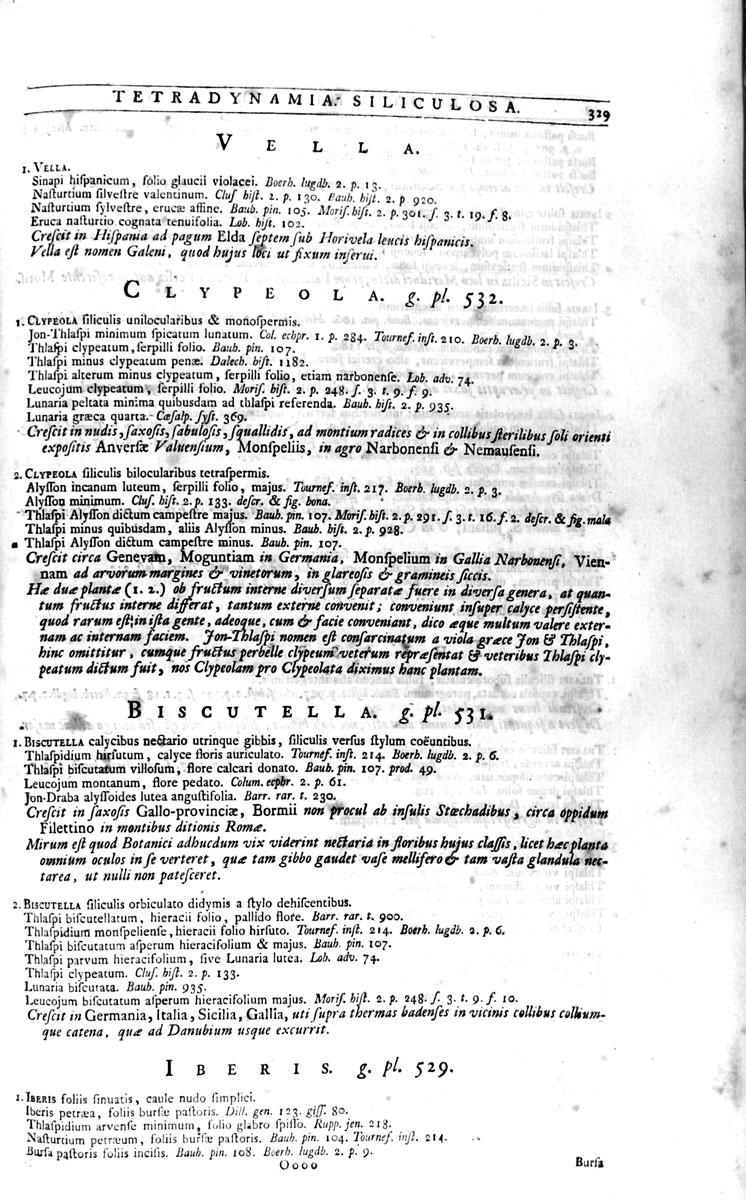 TETRADYNAMIA. SILICULOSA.
329
VELLA.
1. VELLA.
Sinapi hiſpanicum, folio glaucii violacei. Boerh. lugdb. 2. p. 13.
Naſturtium ſilveſtre valentinum. Cluſ hiſt. 2. p. 130. Bauh. hiſt. 2. p 920.
Naſturtium ſylveſtre, erucæ affine. Bauh. pin. 105. Moriſ. hiſt. 2. p. 301. ſ. 3. t. 19. f. 8.
Eruca naſturtio cognata tenuifolia. Lob. hiſt. 102.
Creſcit in Hiſpania ad pagum Elda ſeptem ſub Horivela leucis hiſpanicis.
Vella eſt nomen Galeni, quod hujus loci ut fixum inſerui.
CLYPEOLA. g. pl. 532.
1. CLYPEOLA ſiliculis unilocularibus & monoſpermis.
Jon-Thlaſpi minimum ſpicatum lunatum. Col. ecphr. 1. p. 284. Tournef. inſt. 210. Boerh. lugdb. 2. p. 3.
Thlaſpi clypeatum, ſerpilli folio. Bauh. pin. 107.
Thlaſpi minus clypeatum penæ. Dalech. hiſt. 1182.
Thlaſpi alterum minus clypeatum, ſerpilli folio, etiam narbonenſe. Lob. adv. 74.
Leucojum clypeatum, ſerpilli folio. Moriſ. hiſt. 2. p. 248. ſ. 3. t. 9. f. 9.
Lunaria peltata minima quibusdam ad thlaſpi referenda. Bauh. hiſt. 2. p. 935.
Lunaria græca quarta. Cæſalp. ſyſt. 369.
Creſcit in nudis, ſaxoſis, ſabuloſis, ſquallidis, ad montium radices & in collibus ſterilibus ſoli orienti
expoſitis Anverſæ Valuenſium, Monſpeliis, in agro Narbonenſi & Nemauſenſi.
2. CLYPEOLA ſiliculis bilocularibus tetraſpermis.
Alyſſon incanum luteum, ſerpilli folio, majus. Tournef. inſt. 217. Boerh. lugdb. 2. p. 3.
Alyſſon minimum. Cluſ. hiſt. 2. p. 133. deſcr. & fig. bona.
Thlaſpi Alyſſon dictum campeſtre majus. Bauh. pin. 107. Moriſ. hiſt. 2. p. 291. ſ. 3. t. 16. f. 2. deſcr. & fig. mala
Thlaſpi minus quibusdam, aliis Alyſſon minus. Bauh. hiſt. 2. p. 928.
Thlaſpi Alyſſon dictum campeſtre minus. Bauh. pin. 107.
Creſcit circa Genevam, Moguntiam in Germania, Monſpelium in Gallia Narbonenſi, Vien-
nam ad arvorum margines & vinetorum, in glareoſis & gramineis ſiccis.
Hæ duæ plantæ (1. 2.) ob fructum interne diverſum ſeparatæ fuere in diverſa genera, at quan-
tum fructus interne differat, tantum externe convenit; conveniunt inſuper calyce perſiſtente,
quod rarum eſt in iſta gente, adeoque, cum & facie conveniant, dico æque multum valere exter-
nam ac internam faciem. Jon-Thlaſpi nomen eſt conſarcinatum a viola græce Jon & Thlaſpi,
hinc omittitur, cumque fructus perbelle clypeum veterum repræſentat & veteribus Thlaſpi cly-
peatum dictum fuit, nos Clypeolam pro Clypeolata diximus hanc plantam.
BISCUTELLA. g. pl. 531.
1. BISCUTELLA calycibus nectario utrinque gibbis, ſiliculis verſus ſtylum coëuntibus.
Thlaſpidium hirſutum, calyce floris auriculato. Tournef. inſt. 214. Boerh. lugdb. 2. p. 6.
Thlaſpi biſcutatum villoſum, flore calcari donato. Bauh. pin. 107. prod. 49.
Leucojum montanum, flore pedato. Colum. ecphr. 2. p. 61.
Jon-Draba alyſſoides lutea anguſtifolia. Barr. rar. t. 230.
Creſcit in ſaxoſis Gallo-provinciæ, Bormii non procul ab inſulis Stœchadibus, circa oppidum
Filettino in montibus ditionis Romæ.
Mirum eſt quod Botanici adhucdum vix viderint nectaria in floribus hujus claſſis, licet hæc planta
omnium oculos in ſe verteret, quæ tam gibbo gaudet vaſe mellifero & tam vaſta glandula nec-
tarea, ut nulli non pateſceret.
2. BISCUTELLA ſiliculis orbiculato didymis a ſtylo dehiſcentibus.
Thlaſpi biſcutellatum, hieracii folio, pallido flore. Barr. rar. t. 900.
Thlaſpidium monſpelienſe, hieracii folio hirſuto. Tournef. inſt. 214. Boerh. lugdb. 2. p. 6.
Thlaſpi biſcutatum aſperum hieracifolium & majus. Bauh. pin. 107.
Thlaſpi parvum hieracifolium, ſive Lunaria lutea. Lob. adv. 74.
Thlaſpi clypeatum. Cluſ. hiſt. 2. p. 133.
Lunaria biſcutata. Bauh. pin. 935.
Leucojum biſcutatum aſperum hieracifolium majus. Moriſ. hiſt. 2. p. 248. ſ. 3. t. 9. f. 10.
Creſcit in Germania, Italia, Sicilia, Gallia, uti ſupra thermas badenſes in vicinis collibus collium-
que catena, quæ ad Danubium usque excurrit.
IBERIS. g. pl. 529.
1. IBERIS foliis ſinuatis, caule nudo ſimplici.
Iberis petræa, foliis burſæ paſtoris. Dill. gen. 123. giſſ. 80.
Thlaſpidium arvenſe minimum, folio glabro ſpiſſo. Rupp. jen. 218.
Naſturtium petræum, foliis burſæ paſtoris. Bauh. pin. 104. Tournef. inſt. 214.
Burſa paſtoris foliis inciſis. Bauh. pin. 108. Boerh. lugdb. 2. p. 9.
Oooo
Burſa